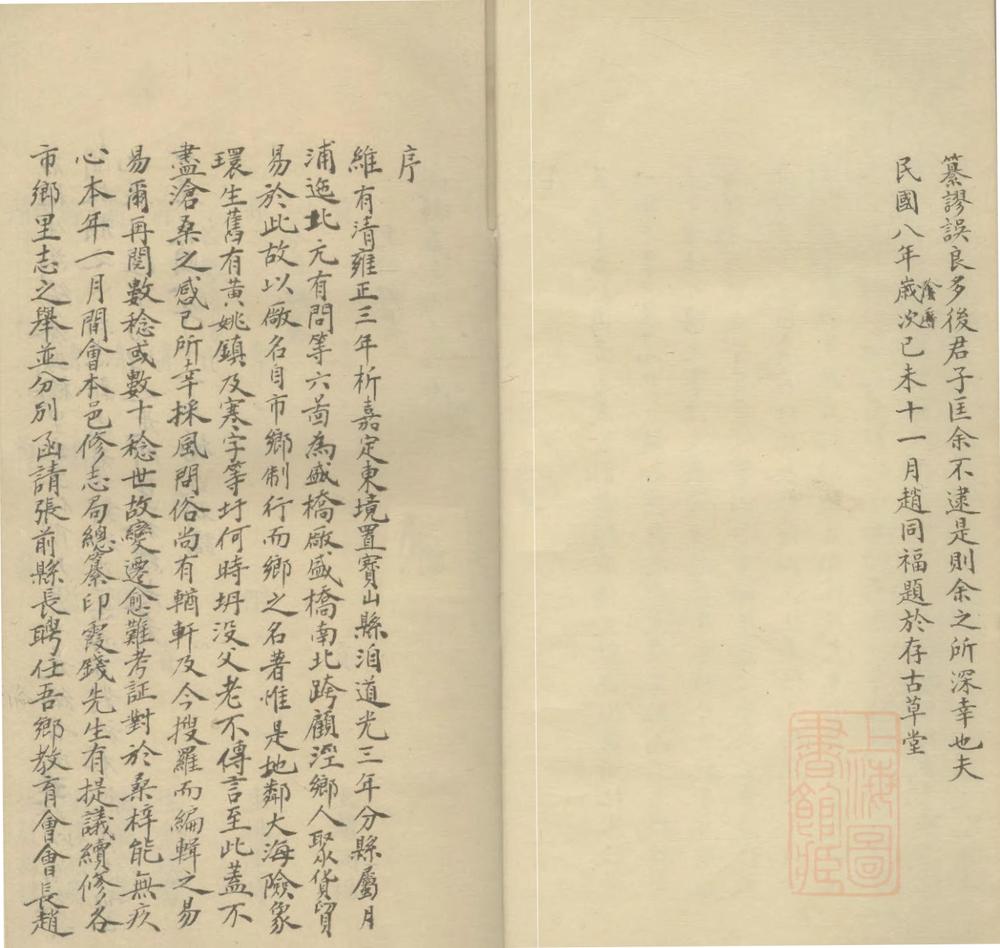 纂謬誤良多後君子匡余不逮是則余之所深幸也夫
民國八年歲次陰曆己未十一月趙同福題於存古草堂
上海圖書館藏
序
維有清雍正三年析嘉定東境置寶山縣洎道光三年分縣屬月
浦迤北元有問等六啚為盛橋廠盛橋南北跨顧涇鄉人聚貨貿
易於此故以廠名自市鄉制行而鄉之名著惟是地鄰大海險象
環生舊有黃姚鎮及寒字等圩何時坍沒父老不傳言至此蓋不
盡滄桑之感已所幸採風問俗尚有輶軒及今搜羅而編輯之易
易爾再閱數稔或數十稔世故變遷愈難考証對於桑梓能無疚
心本年一月間會本邑修志局總纂印霞錢先生有提議續修各
市鄉里志之舉並分別函請張前縣長聘任吾鄉教育會會長趙